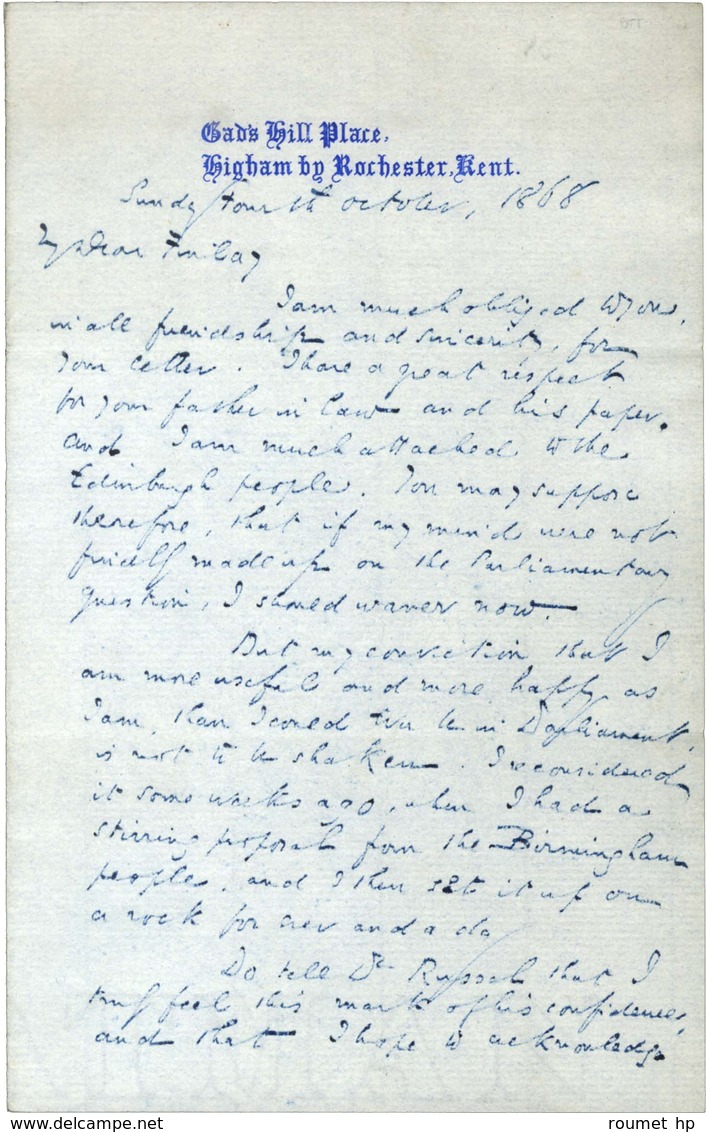 Gad's Hill Place,
Higham by Rochester, Kent.
Sunday Fourth October, 1868
My Dear Finlay
I am much obliged to you,
in all friendship and sincerity, for
your letter. I have a great respect
for your father in law and his paper,
and I am much attached to the
Edinburgh people. You may suppose
therefore, that if my mind were not
fully made up on the Parliamentary
question, I should waver now.
But my conviction that I
am more useful and more happy as
I am, than I could ever be in Parliament,
is not to be shaken. I reconsidered
it some weeks ago, when I had a
stirring proposal from the Birmingham
people, and I then set it up on
a rock for ever and a day
Do tell Mr Russel that I
truly feel this mark of his confidence,
and that I hope to acknowledge
roumet hp